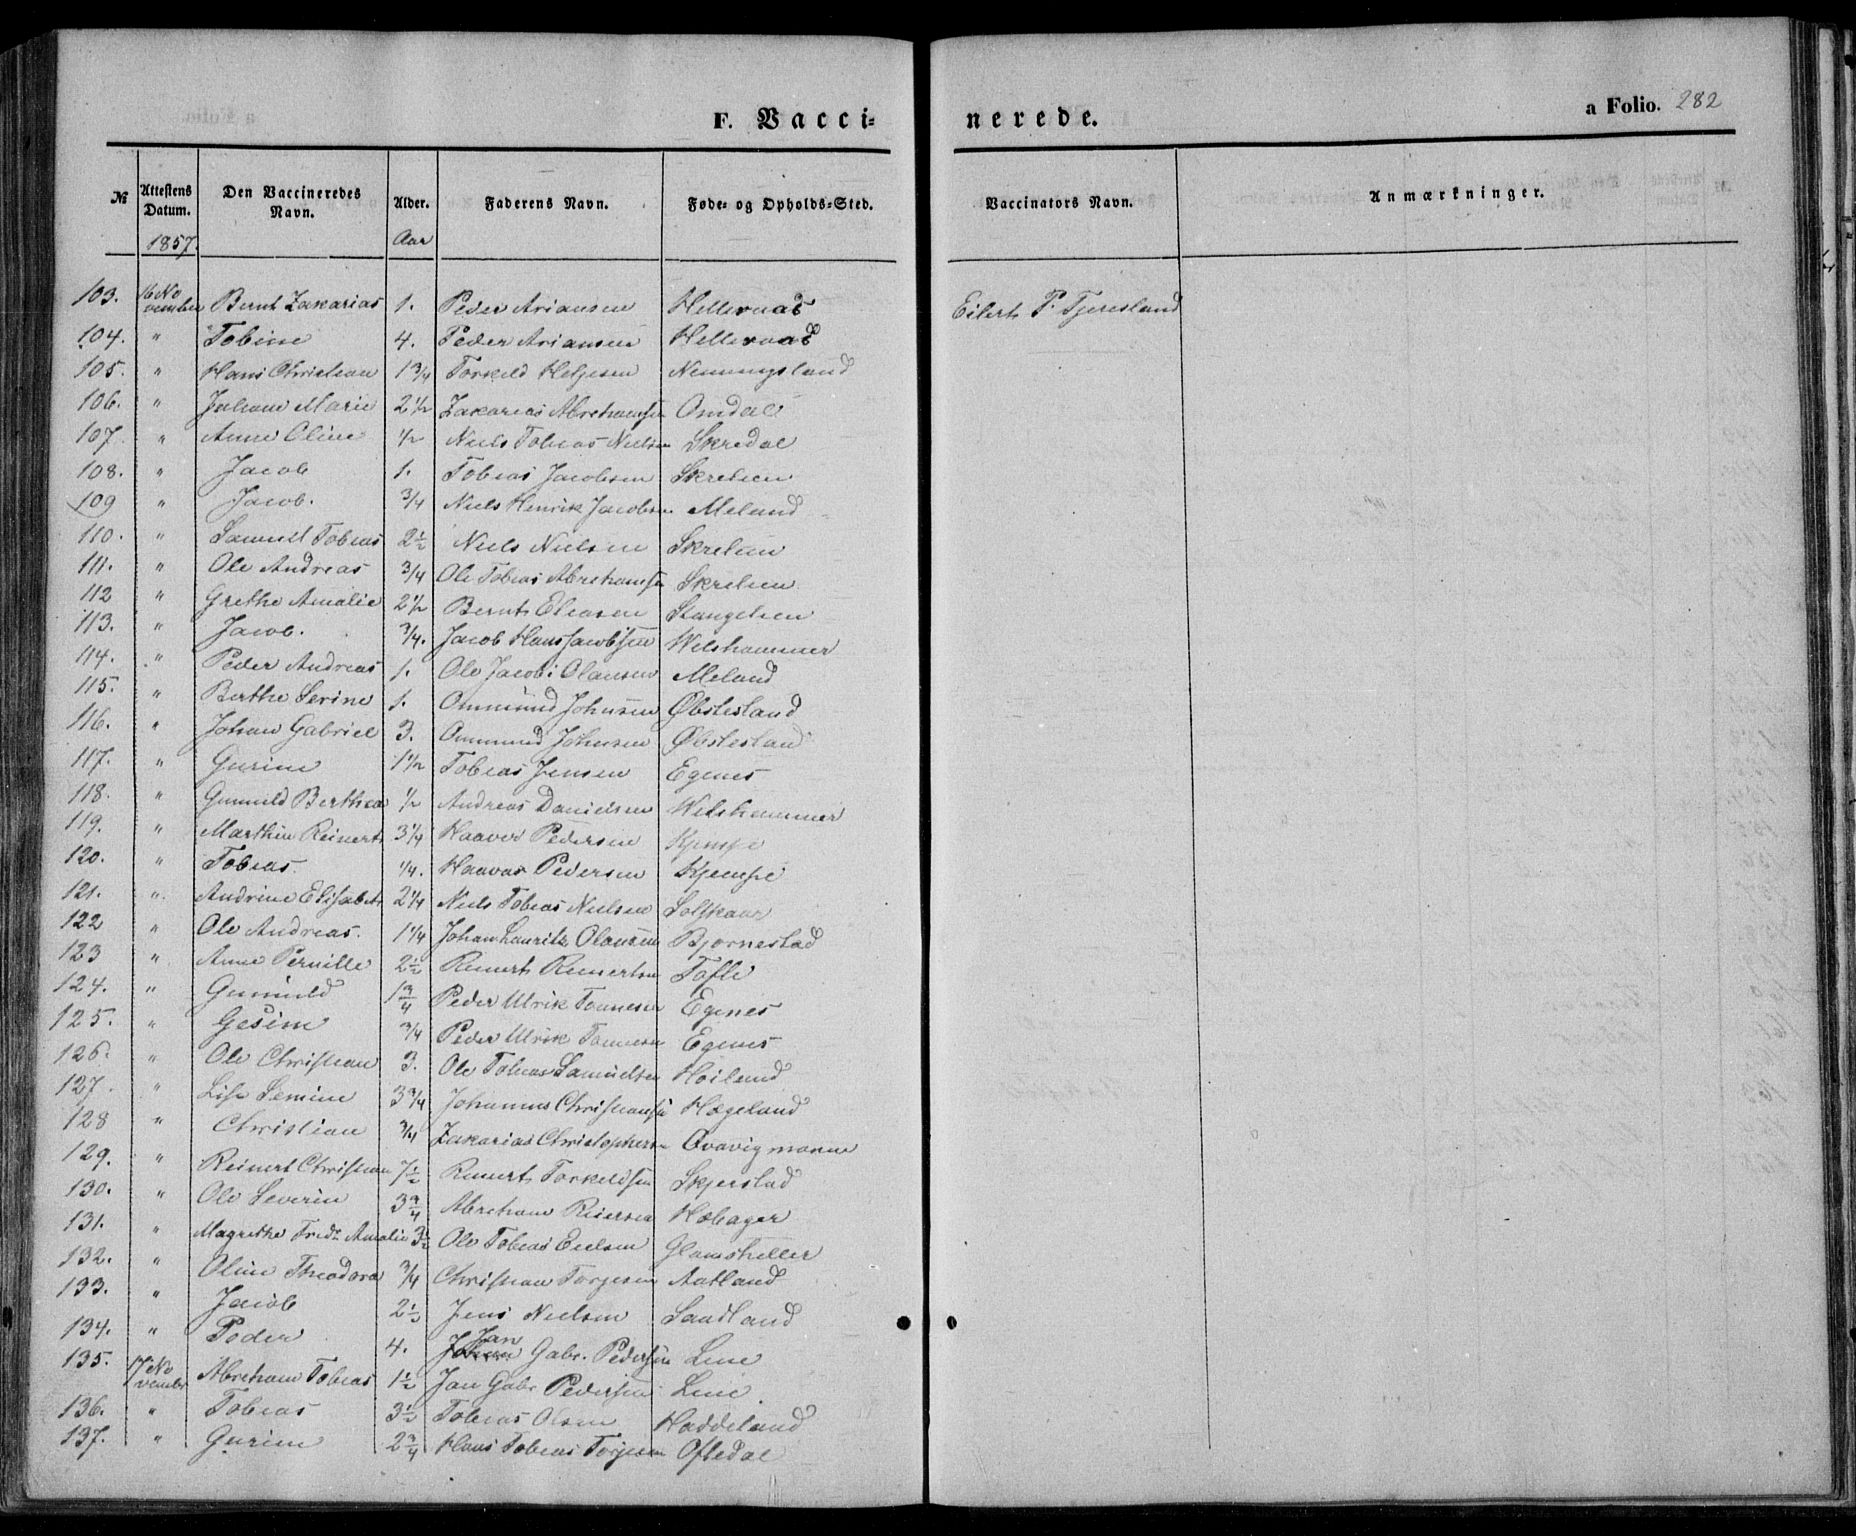 F. Vacci- nerede. a Folio. 282
№ Attestens Datum. Den Vaccineredes Navn. Alder. Faderens Navn. Føde- og Opholds-Sted. Vaccinators Navn. Anmærkninger.
1857. Aar
103. 16 November Bernt Zakarias 1. Peder Ariansen Hellernæs Eilert P. Tjeresland
104. " Tobine 4. Peder Ariansen Hellernæs
105. " Hans Christian 1 3/4 Torkeld Helgesen Nenningsland
106. " Juliane Marie 2 1/2 Zakarias Abrehamsen Omdal
107. " Anne Oline 1/2 Niels Tobias Nielsen Skredal
108. " Jacob 1. Tobias Jacobsen Skrelien
109 " Jacob. 3/4 Niels Henrik Jacobsen Meland
110. " Samuel Tobias 2 1/2 Niels Nielsen Skrelien
111. " Ole Andreas 3/4 Ole Tobias Abrehamsen Skrelien
112 " Grethe Amalie 2 1/2 Bernt Eliasen Stangelien
113. " Jacob. 3/4. Jacob Hans Jacobsen Welshammer
114. " Peder Andreas 1. Ole Jacob Olausen Meland
115. " Berthe Serine 1. Ommund Johnsen Øbstesland
116. " Johan Gabriel 3. Ommund Johnsen Øbstesland
117. " Gurine 1 1/2 Tobias Jensen Egenes
118. " Gunnild Berthea 1/2 Andreas Danielsen Welshammer
119. " Marthin Reinert 3 1/4 Haaver Pedersen Kjempe
120. " Tobias. 1/4. Haavar Pedersen Kjempe
121. " Andrine Elisabeth 2 1/4 Niels Tobias Nielsen Solskaar
122 " Ole Andreas. 1 1/4 Johan Lauritz Olausen Bjørnestad
123 " Anne Pernille 2 1/2 Reinert Reinertsen Tofte
124. " Gunnild 1 3/4 Peder Ulrik Tønnesen Egenes
125. " Gesine 3/4 Peder Ulrik Tønnesen Egenes
126. " Ole Christian 3. Ole Tobias Samuelsen Høiland
127. " Lise Semine 3 3/4 Johannes Christiansen Hægeland
128 " Christian 3/4 Zakarias Christophersen
129. " Reinert Christian 7 1/2 Reinert Torkeldsen Skjerstad
130. " Ole Severin 3 3/4 Abreham Reiersen Høbager
131. " Magrethe Fredr. Amalie 3 1/2 Ole Tobias Eielsen
132. " Oline Theodora 3/4 Christian Torjesen Aatland
133. " Jacob 2 1/2 Jens Nielsen Sandland
134. " Peder 4. Jan Gabr. Pedersen Lene
135. 17 November Abreham Tobias 1 1/2 Jan Gabr Pedersen Lene
136. " Tobias 3 1/2 Tobias Olsen Haddeland
137. " Gurine 2 3/4 Hans Tobias Torjesen Oftedal